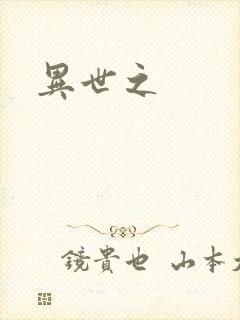 異世之
鏡貴也 山本